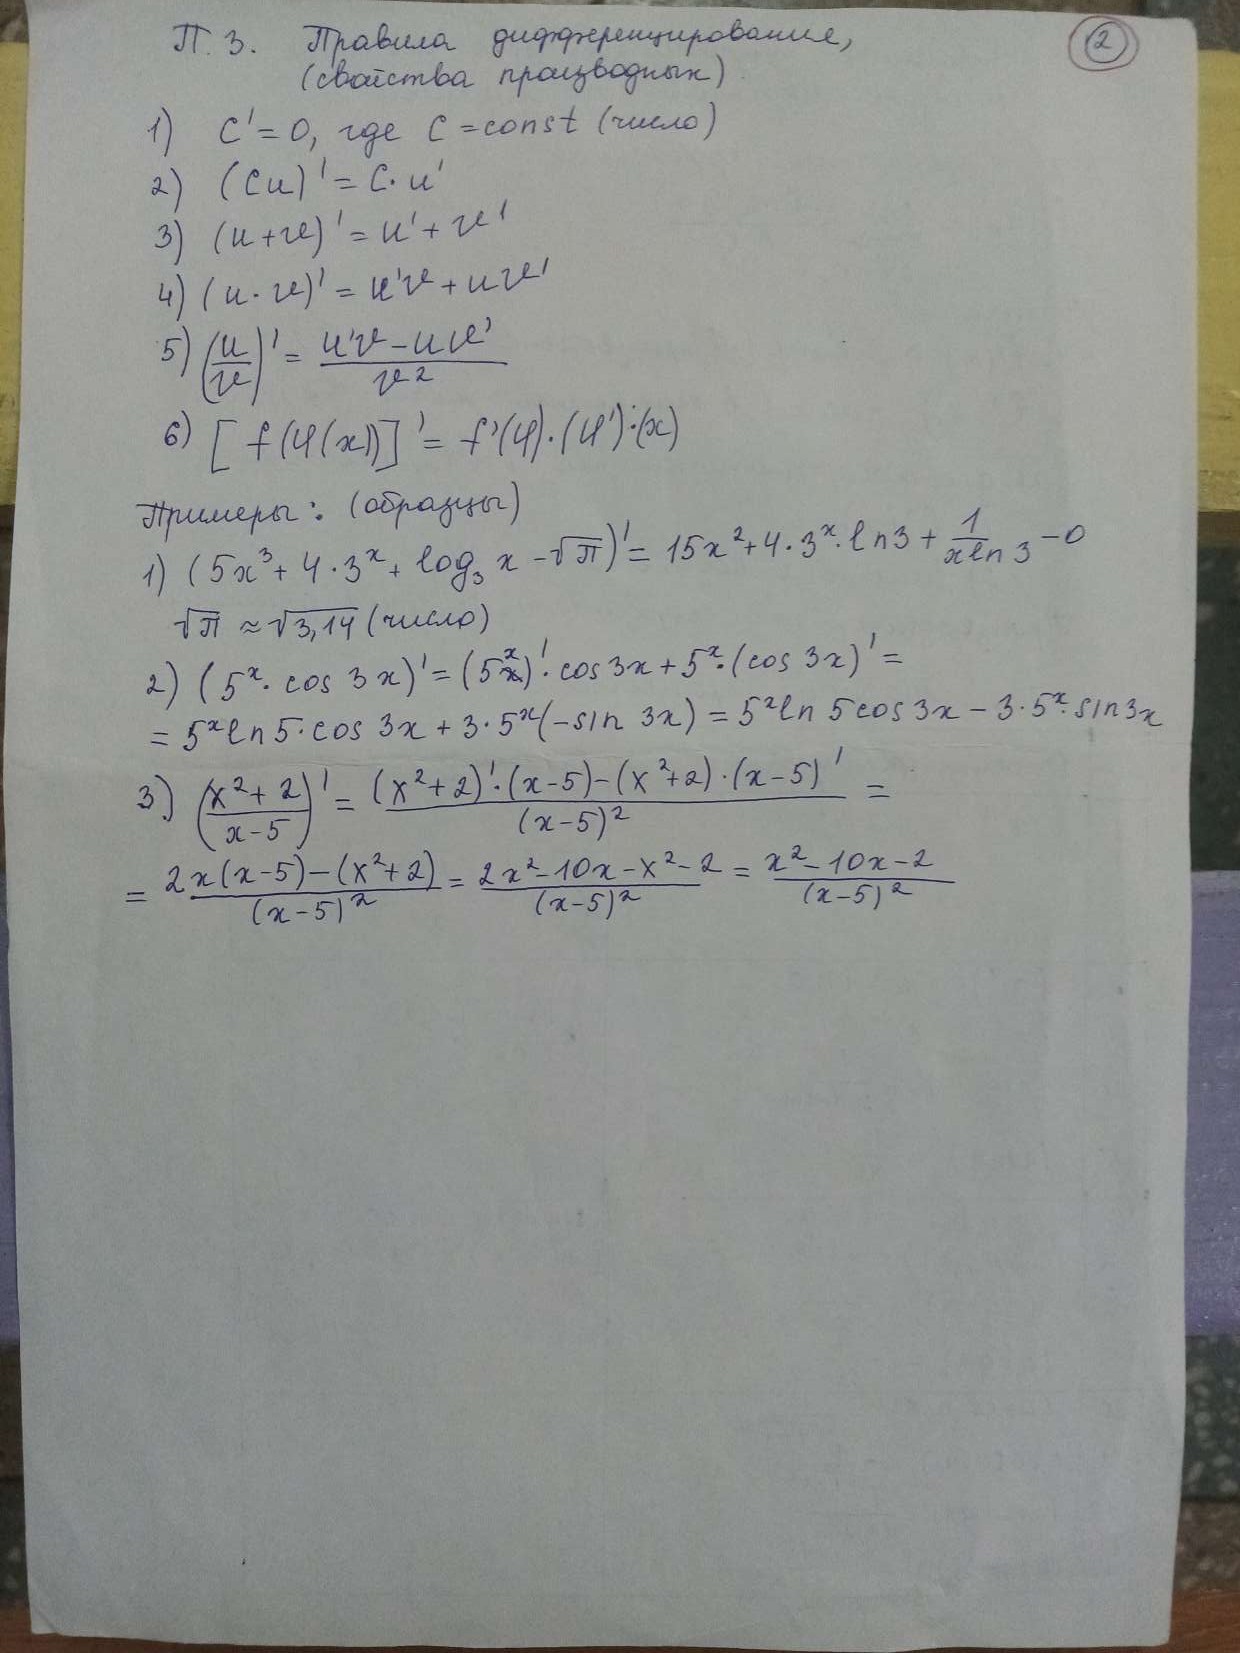 П. 3. Правила дифференцирование, ②
(свойства производных)
1) C' = 0, где C = const (число)
2) (Cu)' = C · u'
3) (u + v)' = u' + v'
4) (u · v)' = u'v + uv'
5) (u/v)' = (u'v − uv')/v²
6) [f(φ(x))]' = f'(φ) · (φ') · (x)
Примеры: (образцы)
1) (5x³ + 4 · 3ˣ + log₃ x − √π)' = 15x² + 4 · 3ˣ · ln3 + 1/(x ln 3) − 0
√π ≈ √3,14 (число)
2) (5ˣ · cos 3x)' = (5ˣ)' · cos 3x + 5ˣ · (cos 3x)' =
= 5ˣ ln 5 · cos 3x + 3 · 5ˣ (−sin 3x) = 5ˣ ln 5 cos 3x − 3 · 5ˣ · sin 3x
3) ((x² + 2)/(x − 5))' = ((x² + 2)' · (x − 5) − (x² + 2) · (x − 5)')/(x − 5)² =
= (2x(x − 5) − (x² + 2))/(x − 5)² = (2x² − 10x − x² − 2)/(x − 5)² = (x² − 10x − 2)/(x − 5)²